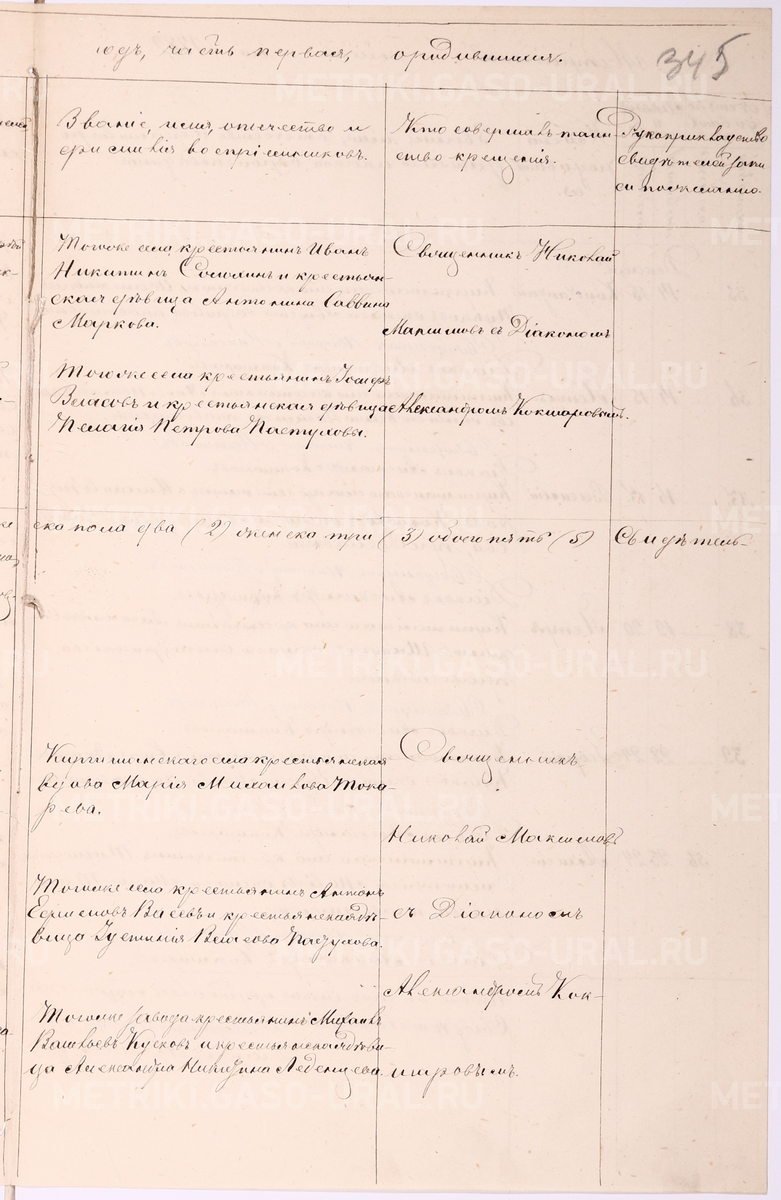 345
годъ, часть первая, о родившихся.
Званіе, имя, отчество и
фамилія воспріемниковъ.
Кто совершалъ таин-
ство крещенія.
Рукоприкладство
свидѣтелей запи
си по желанію.
Тогоже села, крестьянинъ Иванъ
Никитинъ и крестьян-
ская дѣвица Антонина Саввина
Маркова.
Священникъ Николай
Максимовъ съ Діакономъ
Тогоже села крестьянинъ Іосифъ
Власовъ и крестьянская дѣвица
Пелагія Петрова Пастухова.
Александромъ Кокшаровымъ.
ска пола два (2) женска три (3) обоего пять (5) Свидѣтель-
села крестьянская
вдова Марія Михаилова Тока
рева.
Священникъ
Николай Максимовъ
Тогоже села крестьянинъ Антонъ
и крестьянская дѣ-
вица Іустинія Власова Пастухова.
съ Діакономъ
Александромъ Кок-
Тогоже завода крестьянинъ Михаилъ
и крестьянская дѣви-
ца Александра Никитина Леденцева.
шаровымъ.
METRIKI.GASO-URAL.RU